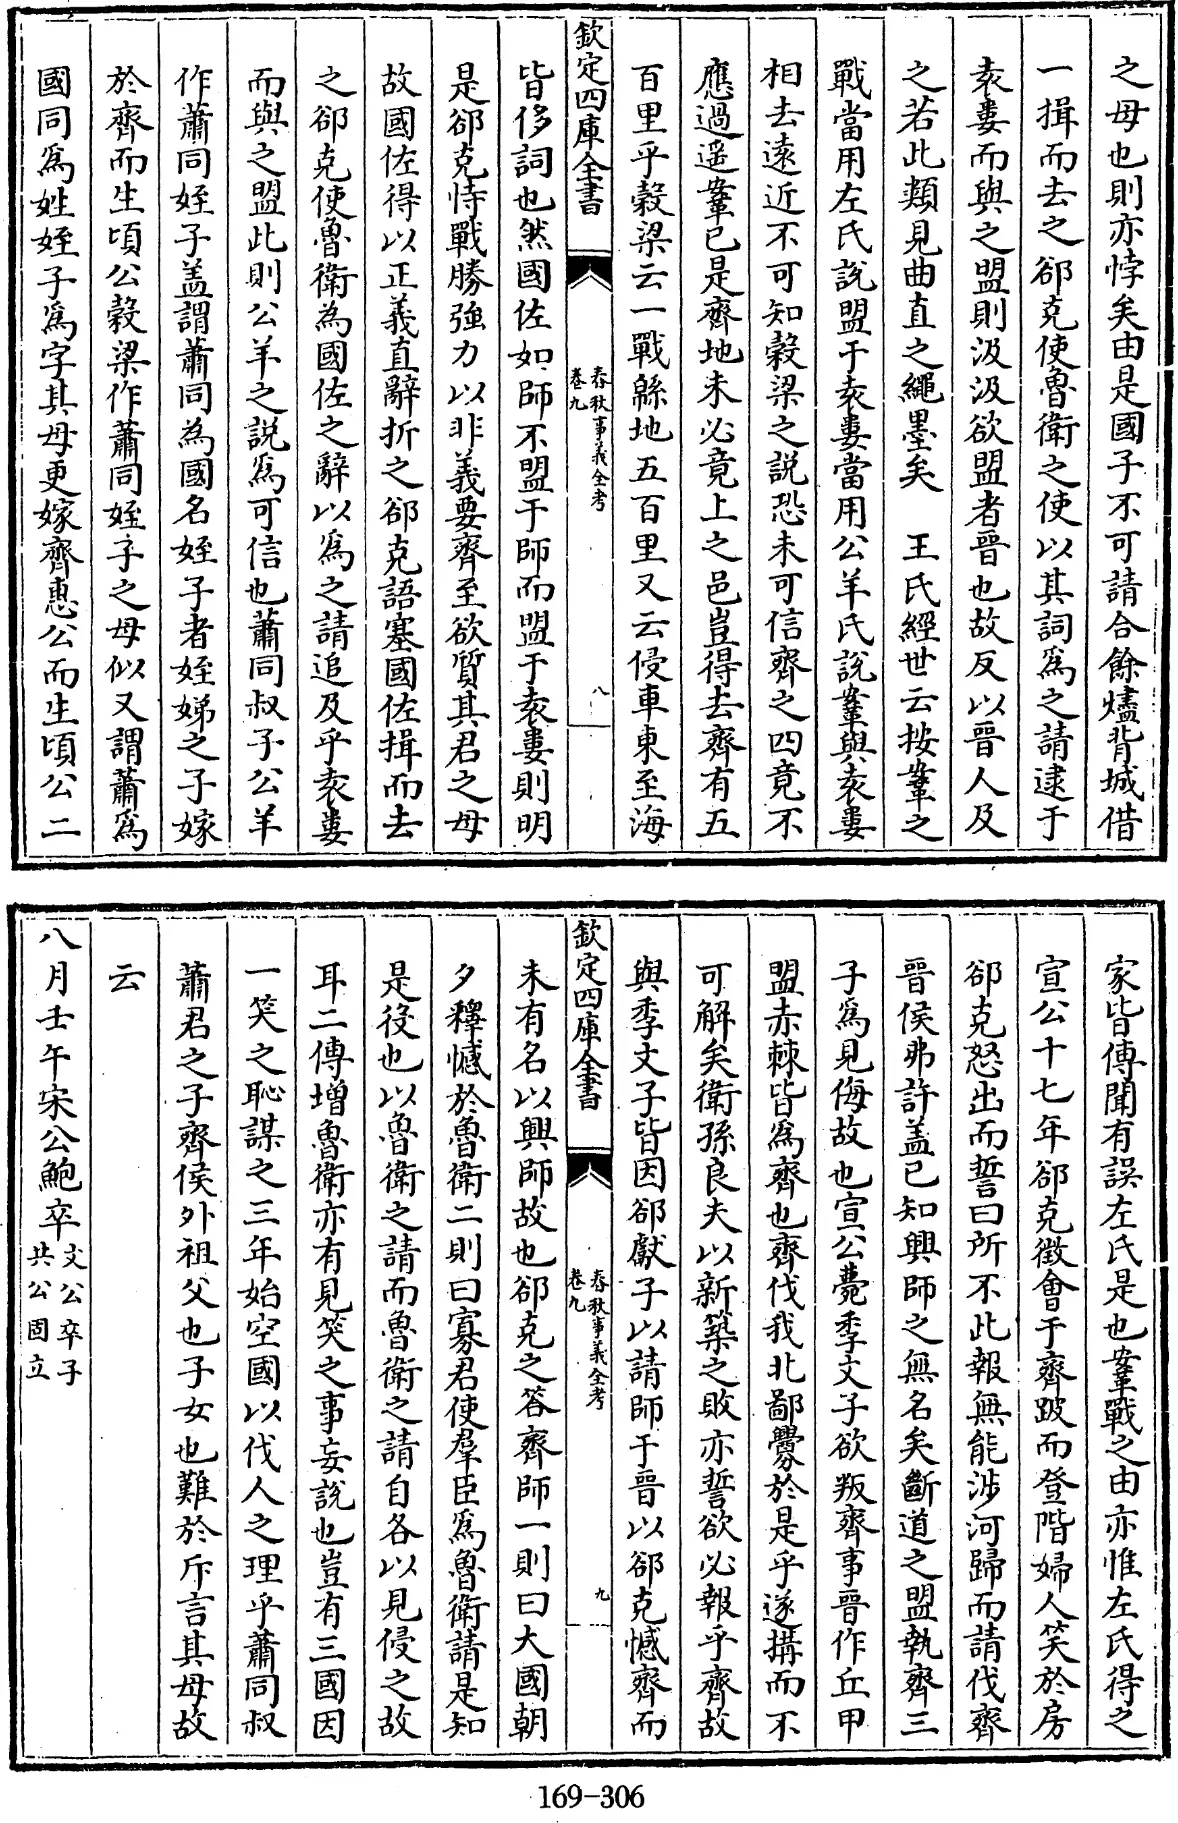 之母也則亦悖矣由是國子不可請合餘燼背城借
一揖而去之郤克使魯衛之使以其詞爲之請逮于
袁婁而與之盟則汲汲欲盟者晉也故反以晉人及
之若此類見曲直之繩墨矣　王氏經世云按鞌之
戰當用左氏說盟于袁婁當用公羊氏說鞌與袁婁
相去遠近不可知穀梁之說恐未可信齊之四竟不
應過遥鞌已是齊地未必竟上之邑豈得去齊有五
百里乎穀梁云一戰緜地五百里又云侵車東至海
欽定四庫全書
春秋事義全考
卷九
八
皆侈詞也然國佐如師不盟于師而盟于袁婁則明
是郤克恃戰勝強力以非義要齊至欲質其君之母
故國佐得以正義直辭折之郤克語塞國佐揖而去
之郤克使魯衛為國佐之辭以爲之請追及乎袁婁
而與之盟此則公羊之說爲可信也蕭同叔子公羊
作蕭同姪子盖謂蕭同為國名姪子者姪娣之子嫁
於齊而生頃公穀梁作蕭同姪子之母似又謂蕭爲
國同爲姓姪子爲字其母更嫁齊惠公而生頃公二
家皆傳聞有誤左氏是也鞌戰之由亦惟左氏得之
宣公十七年郤克徵會于齊跛而登階婦人笑於房
郤克怒出而誓曰所不此報無能涉河歸而請伐齊
晉侯弗許盖已知興師之無名矣斷道之盟執齊三
子爲見侮故也宣公薨季文子欲叛齊事晉作丘甲
盟赤棘皆爲齊也齊伐我北鄙釁於是乎遂搆而不
可解矣衛孫良夫以新築之敗亦誓欲必報乎齊故
與季文子皆因郤獻子以請師于晉以郤克憾齊而
欽定四庫全書
春秋事義全考
卷九
九
未有名以興師故也郤克之答齊師一則曰大國朝
夕釋憾於魯衛二則曰寡君使羣臣爲魯衛請是知
是役也以魯衛之請而魯衛之請自各以見侵之故
耳二傳增魯衛亦有見笑之事妄說也豈有三國因
一笑之恥謀之三年始空國以伐人之理乎蕭同叔
蕭君之子齊侯外祖父也子女也難於斥言其母故
云
八月壬午宋公鮑卒文公卒子
共公固立
169-306